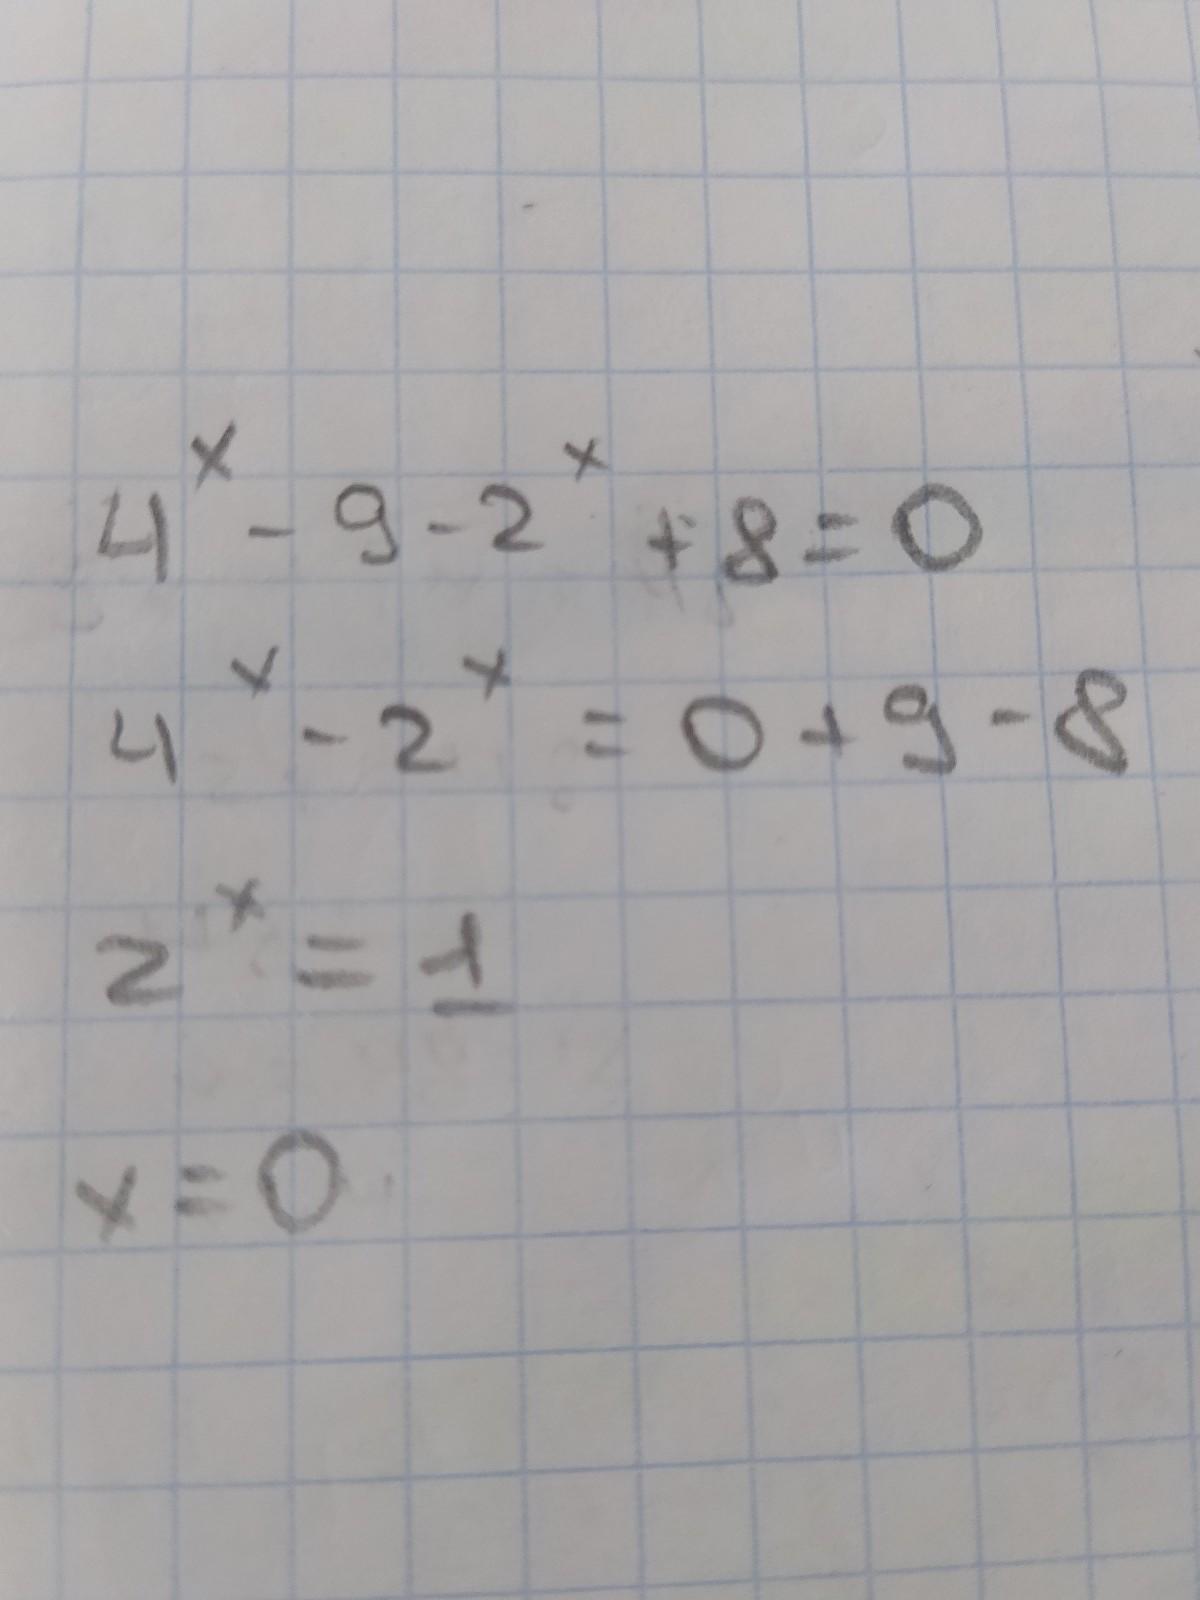 4^x - 9 - 2^x + 8 = 0
4^x - 2^x = 0 + 9 - 8
2^x = 1
x = 0